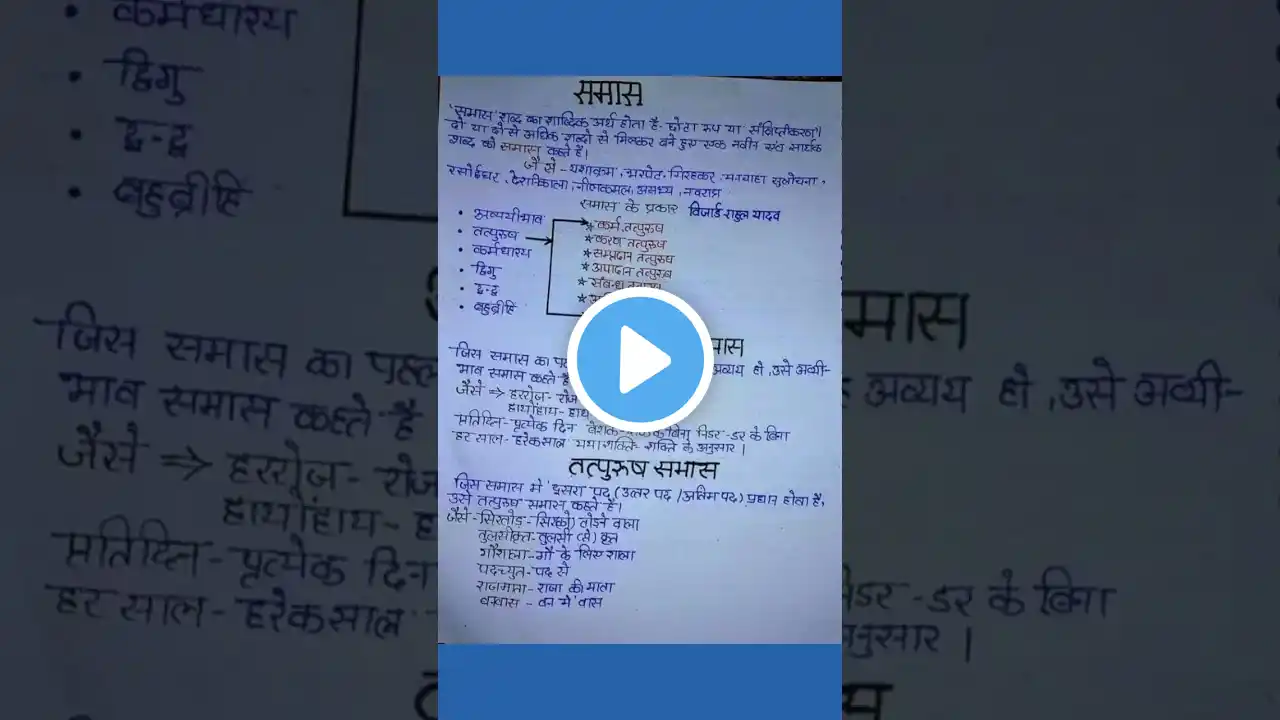 समास
'समास' शब्द का शाब्दिक अर्थ होता है- छोटा रूप या संक्षिप्तीकरण।
दो या दो से अधिक शब्दो से मिलकर बने हुए एक नवीन एवं सार्थक
शब्द को समास कहते है।
जैसे - यथाक्रम, भरपेट, गिरहकर, मनचाहा सुलोचना,
रसोईघर, देशनिकाला, नीलकमल, असभ्य, नवरात्र
समास के प्रकार विजार्ड राहुल यादव
• अव्ययीभाव
• तत्पुरुष
• कर्मधारय
• द्विगु
• द्वन्द्व
• बहुब्रीहि
★ कर्म तत्पुरुष
★ करण तत्पुरुष
★ सम्प्रदान तत्पुरुष
★ अपादान तत्पुरुष
★ संबन्ध तत्पुरुष
मास
जिस समास का पहल अव्यय हो ,उसे अव्यी-
भाव समास कहते है
जैसे ⇒ हररोज- रोज
हाथोंहाथ- हाथ
प्रतिदिन- प्रत्येक दिन बेशक- शक के बिना निडर -डर के बिना
हर साल- हरेकसाल यथाशक्ति- शक्ति के अनुसार |
तत्पुरुष समास
जिस समास मे दूसरा पद (उत्तर पद /अंतिम पद) प्रधान होता है,
उसे तत्पुरुष समास कहते है।
जैसे- सिरतोड़- सिर(को) तोडने वाला
तुलसीकृत- तुलसी (से) कृत
गौशाला- गौ के लिए शाला
पदच्युत- पद से
राजमाता- राजा की माता
वनवास - वन मे वास